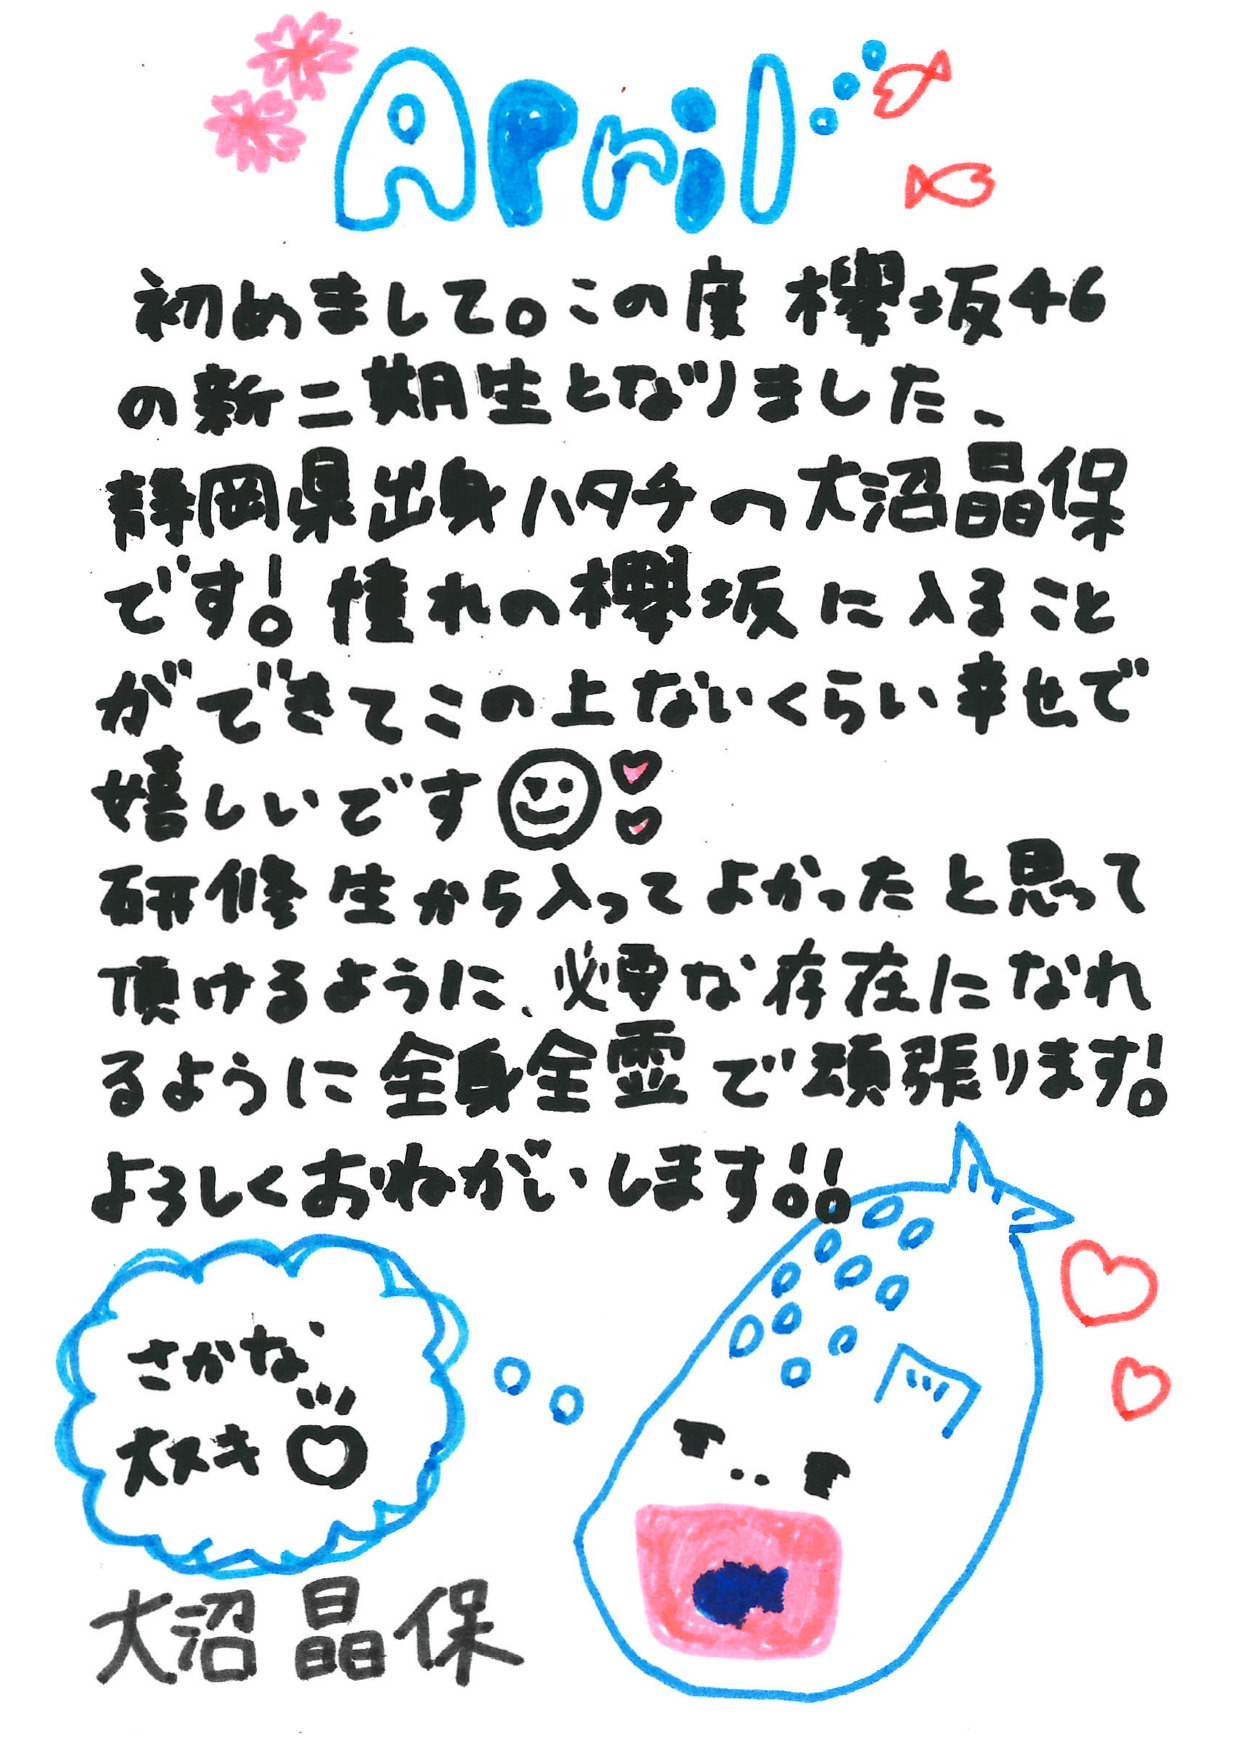 April
初めまして。この度 欅坂46
の新二期生となりました、
静岡県出身ハタチの大沼晶保
です! 憧れの欅坂に入ること
ができてこの上ないくらい幸せで
嬉しいです
研修生から入ってよかったと思って
頂けるように、必要な存在になれ
るように全身全霊で頑張ります!
よろしくおねがいします!!
さかな
大スキ
大沼 晶保